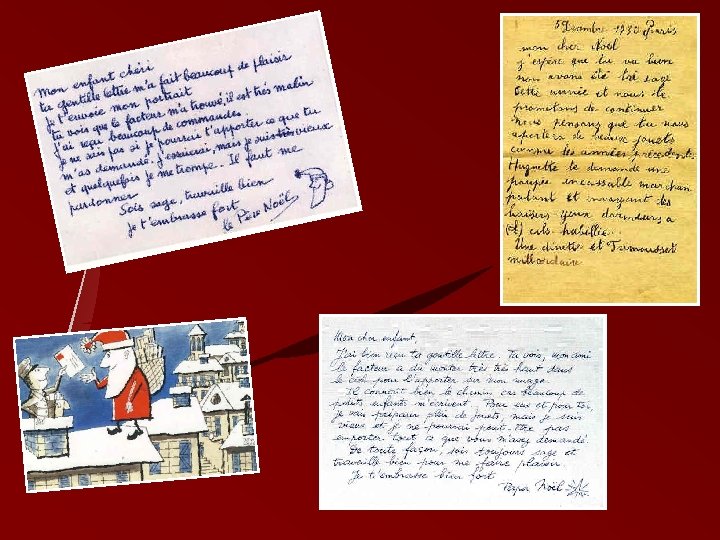 Mon enfant chéri
tu gentille lettre m'a fait beaucoup de plaisir
Je t'envoie mon portrait
tu vois que le facteur m'a trouvé, il est très malin
J'ai reçu beaucoup de commandes.
je ne sais pas si je pourrai t'apporter ce que tu
m'as demandé. J'essaierai, mais je suis très vieux
et quelquefois je me trompe.. Il faut me
pardonner
Sois sage, travaille bien
Je t'embrasse fort
le Père Noël
5 Décembre 1930 Paris
mon cher Noël
j'espère que tu va bien
nous avons été très sage
cette année et nous te
promettons de continuer
nous pensons que tu nous
apportera de beaux jouets
comme les années précédents
Huguette te demande une
poupée incassable marchan
parlant et envoyant des
baisers yeux dormeurs a
cils habillée..
Une dinette et
milliardaire
Mon cher enfant,
J'ai bien reçu ta gentille lettre. Tu vois, mon ami
le facteur a dû monter très très haut dans
le ciel pour l'apporter sur mon nuage.
Il connaît bien le chemin car beaucoup de
petits enfants m'écrivent. Pour eux et pour toi,
je vais préparer plein de jouets, mais je suis
vieux et je ne pourrai peut-être pas
emporter tout ce que vous m'avez demandé.
De toute façon, sois toujours sage et
travaille bien pour me faire plaisir.
Je t'embrasse bien fort
Papa Noël